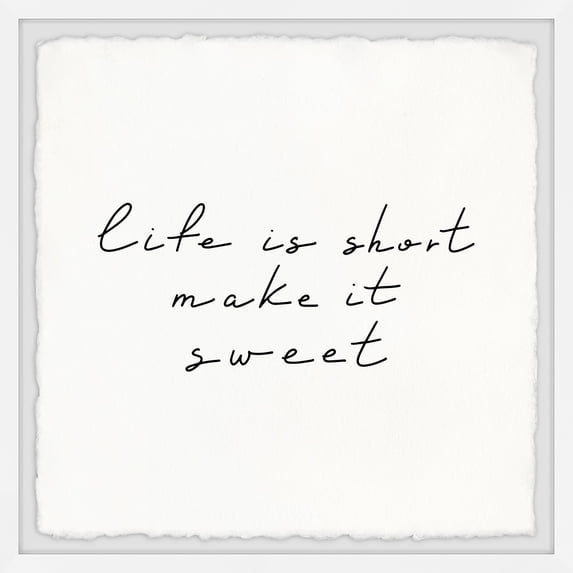 life is short
make it
sweet